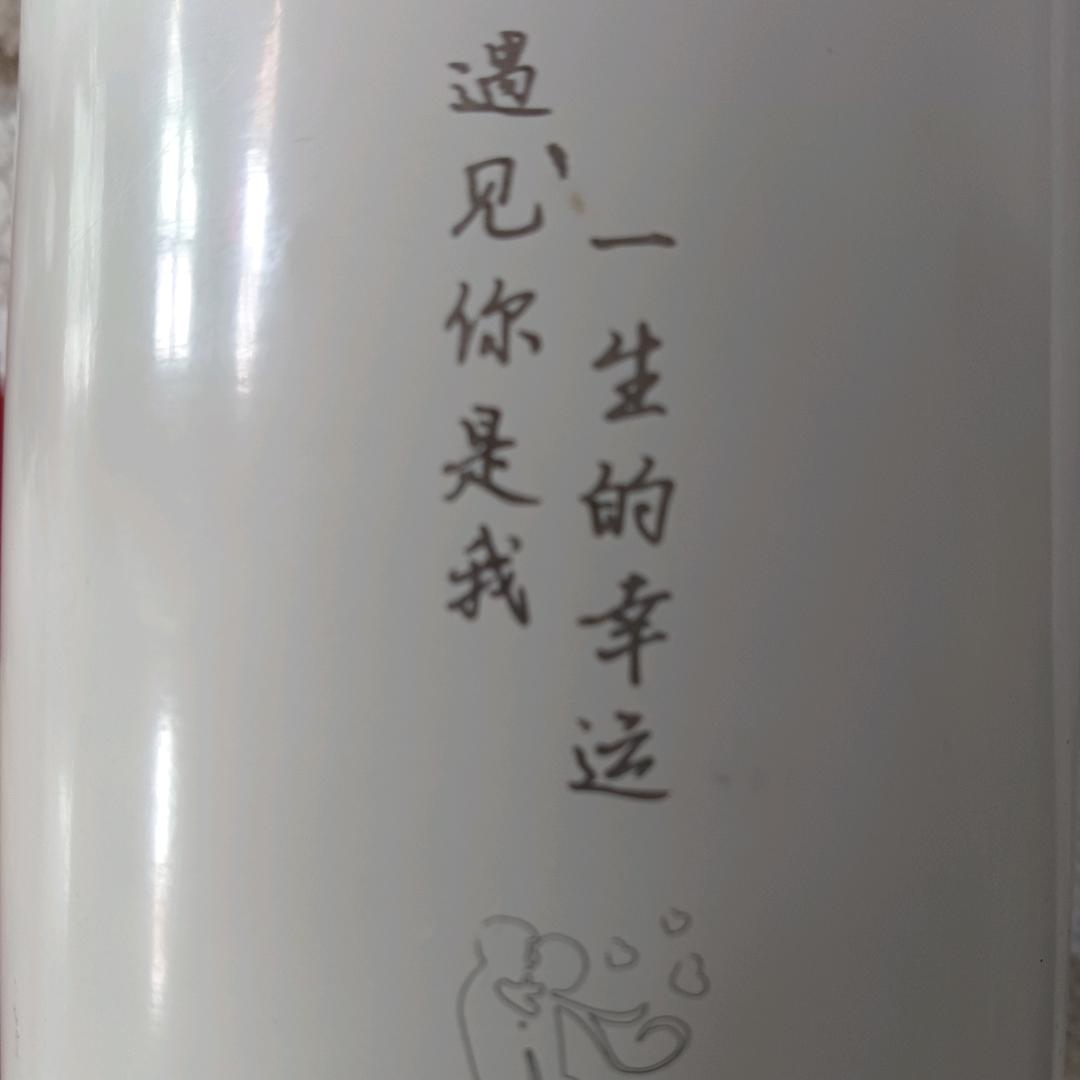 遇见你是我
一生的幸运